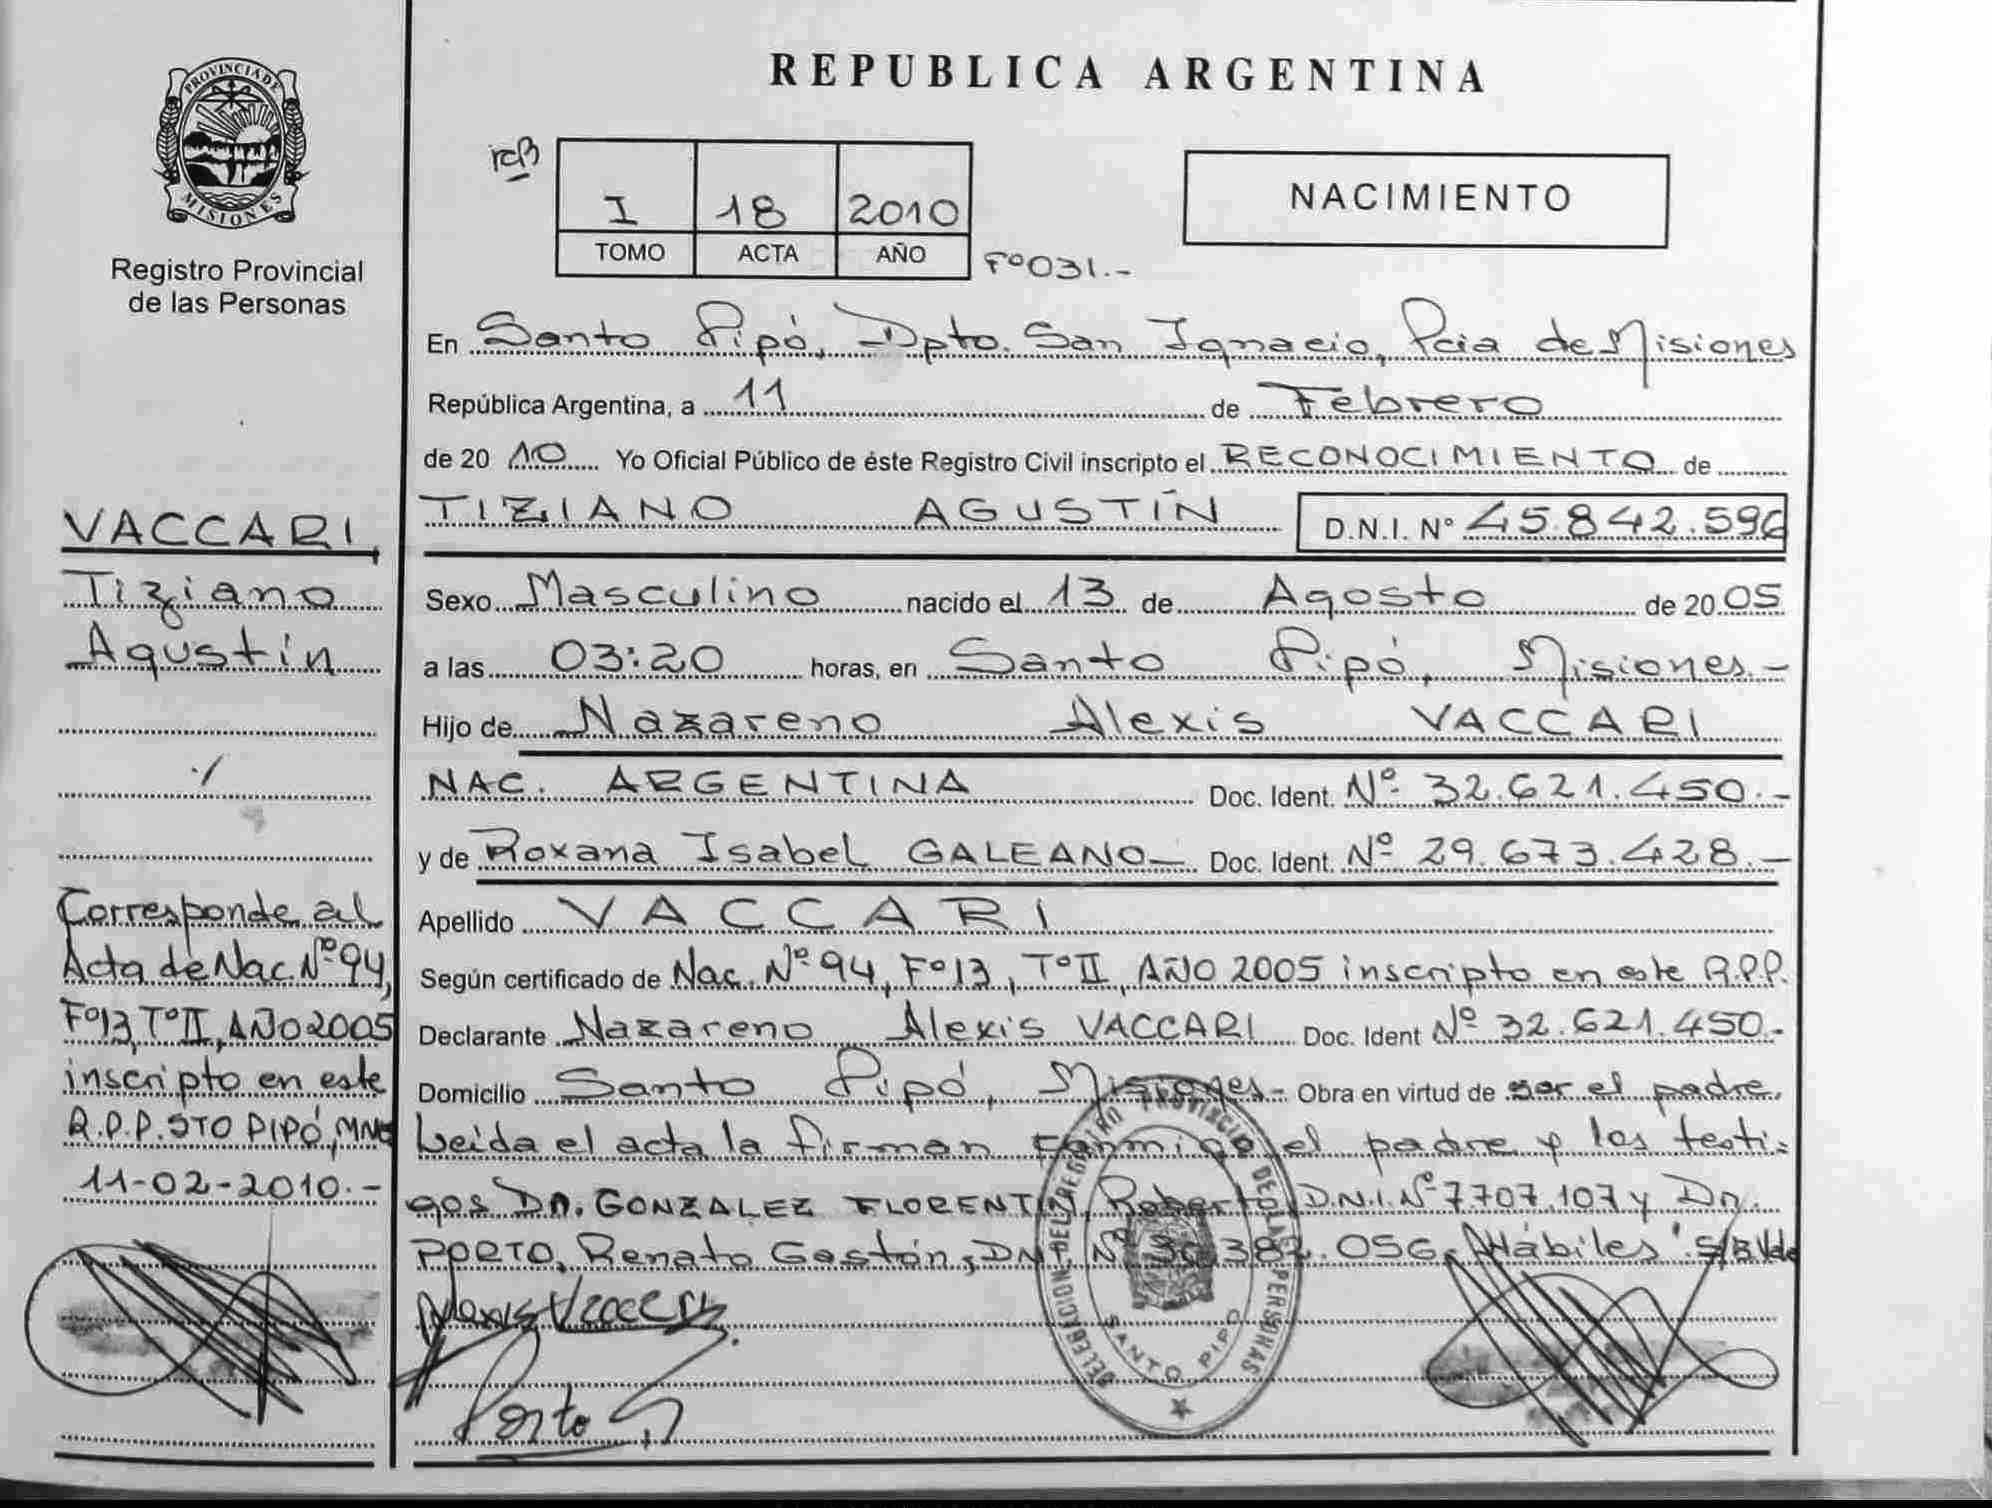 PROVINCIA DE
MISIONES
Registro Provincial
de las Personas
VACCARI,
Tiziano
Agustín
./
Corresponde al
Acta de Nac. Nº 94,
Fº13, TºII, AÑO 2005
inscripto en este
R.P.P. STO PIPÓ, MNES
11-02-2010.-
REPUBLICA ARGENTINA
I 18 2010
TOMO ACTA AÑO
Fº031.-
NACIMIENTO
En Santo Pipó, Dpto. San Ignacio, Pcia de Misiones
República Argentina, a 11 de Febrero
de 20 10 Yo Oficial Público de éste Registro Civil inscripto el RECONOCIMIENTO de
TIZIANO AGUSTÍN D.N.I. Nº 45.842.596
Sexo Masculino nacido el 13 de Agosto de 20 05
a las 03:20 horas, en Santo Pipó, Misiones.-
Hijo de Nazareno Alexis VACCARI
NAC. ARGENTINA Doc. Ident. Nº 32.621.450.-
y de Roxana Isabel GALEANO- Doc. Ident. Nº 29.673.428.-
Apellido VACCARI
Según certificado de Nac. Nº 94, Fº13, TºII, AÑO 2005 inscripto en este R.P.P.
Declarante Nazareno Alexis VACCARI Doc. Ident Nº 32.621.450.-
Domicilio Santo Pipó, Misiones.- Obra en virtud de ser el padre.
Leída el acta la firman conmigo el padre y los testi=
gos Dn. GONZALEZ FLORENTIN, Roberto D.N.I. Nº 7707.107 y Dn.
PORTO, Renato Gastón, DNI Nº 30.382.056. Hábiles S/R Vale
Alexis Vaccari
Porto
DELEGACION DEL REGISTRO PROVINCIAL DE LAS PERSONAS
SANTO PIPO